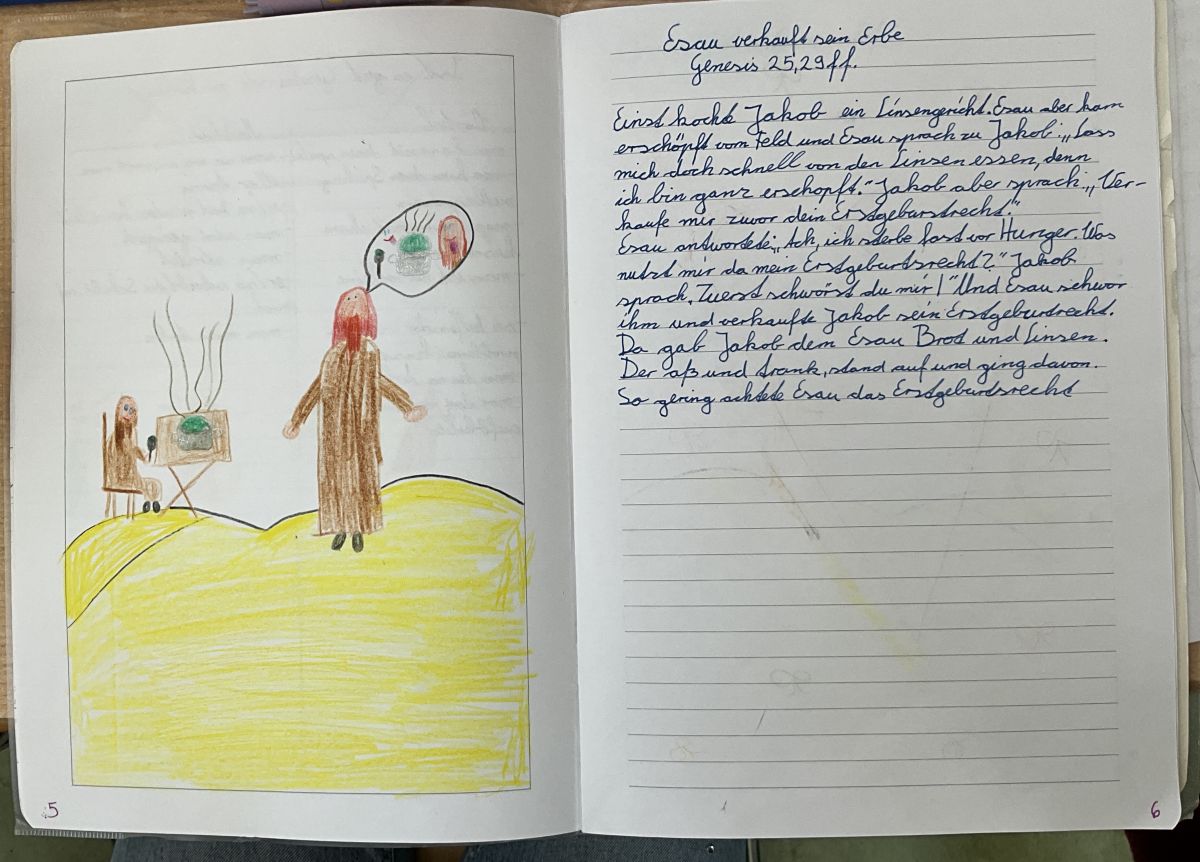 Esau verkauft sein Erbe
Genesis 25,29ff.
Einst kocht Jakob ein Linsengericht. Esau aber kam
erschöpft vom Feld und Esau sprach zu Jakob: „Lass
mich doch schnell von den Linsen essen, denn
ich bin ganz erschopft." Jakob aber sprach: „Ver-
kaufe mir zuvor dein Erstgeburstrecht."
Esau antwortete: „Ach, ich sterbe fast vor Hunger. Was
nutzt mir da mein Erstgeburtsrecht?" Jakob
sprach, „Zuerst schwörst du mir!" Und Esau schwor
ihm und verkaufte Jakob sein Erstgeburtrecht.
Da gab Jakob dem Esau Brot und Linsen.
Der aß und trank, stand auf und ging davon.
So gering achtete Esau das Erstgeburtsrecht
5
6